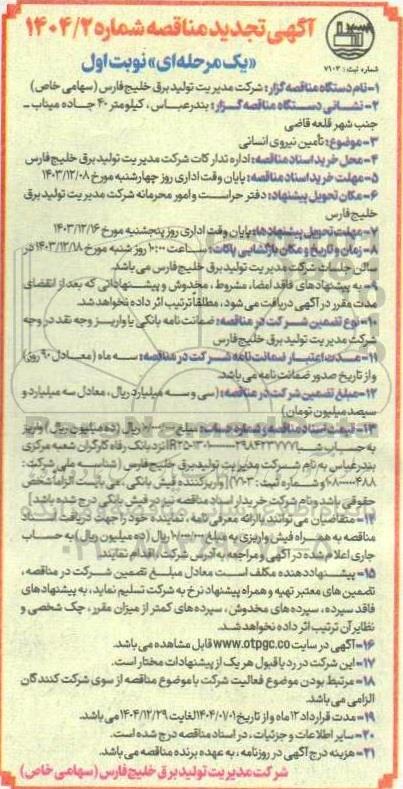 آگهی تجدید مناقصه شماره ۱۴۰۴/۲
«یک مرحله‌ای» نوبت اول
شماره ثبت: ۷۱۰۳
۱- نام دستگاه مناقصه گزار: شرکت مدیریت تولید برق خلیج فارس (سهامی خاص)
۲- نشانی دستگاه مناقصه گزار: بندرعباس، کیلومتر ۴۰ جاده میناب -
جنب شهر قلعه قاضی
۳- موضوع: تأمین نیروی انسانی
۴- محل خرید اسناد مناقصه: اداره تدارکات شرکت مدیریت تولید برق خلیج فارس
۵- مهلت خرید اسناد مناقصه: پایان وقت اداری روز چهارشنبه مورخ ۱۴۰۳/۱۲/۰۸
۶- مکان تحویل پیشنهاد: دفتر حراست و امور محرمانه شرکت مدیریت تولید برق
خلیج فارس
۷- مهلت تحویل پیشنهادها: پایان وقت اداری روز پنجشنبه مورخ ۱۴۰۳/۱۲/۱۶
۸- زمان و تاریخ و مکان بازگشایی پاکات: ساعت ۱۰:۰۰ روز شنبه مورخ ۱۴۰۳/۱۲/۱۸ در
سالن جلسات شرکت مدیریت تولید برق خلیج فارس می‌باشد.
۹- به پیشنهادهای فاقد امضا، مشروط، مخدوش و پیشنهاداتی که بعد از انقضای
مدت مقرر در آگهی دریافت می‌شود، مطلقا ترتیب اثر داده نخواهد شد.
۱۰- نوع تضمین شرکت در مناقصه: ضمانت نامه بانکی یا واریز وجه نقد در وجه
شرکت مدیریت تولید برق خلیج فارس
۱۱- مدت اعتبار ضمانت نامه شرکت در مناقصه: سه ماه (معادل ۹۰ روز)
و از تاریخ صدور ضمانت نامه می‌باشد.
۱۲- مبلغ تضمین شرکت در مناقصه: (سی و سه میلیارد ریال، معادل سه میلیارد و
سیصد میلیون تومان)
۱۳- قیمت اسناد مناقصه و شماره حساب: مبلغ ریال (ده میلیون ریال) واریز
به حساب شبا نزد بانک رفاه کارگران شعبه مرکزی
بندرعباس به نام شرکت مدیریت تولید برق خلیج فارس (شناسه ملی شرکت:
و شماره ثبت: ۷۱۰۳) [واریز کننده فیش بانکی، می بایست الزاما شخص
حقوقی باشد و نام شرکت خریدار اسناد مناقصه نیز در فیش بانکی درج شده باشد]
۱۴- متقاضیان می‌توانند با ارائه معرفی نامه، نماینده خود را جهت دریافت اسناد
مناقصه به همراه فیش واریزی به مبلغ ریال (ده میلیون ریال) به حساب
جاری اعلام شده در آگهی و مراجعه به آدرس شرکت، اقدام نمایند.
۱۵- پیشنهاد دهنده مکلف است معادل مبلغ تضمین شرکت در مناقصه،
تضمین های معتبر تهیه و همراه پیشنهاد نرخ به شرکت تسلیم نماید، به پیشنهادهای
فاقد سپرده، سپرده‌های مخدوش، سپرده‌های کمتر از میزان مقرر، چک شخصی و
نظایر آن ترتیب اثر داده نخواهد شد.
۱۶- آگهی در سایت www.otpgc.co قابل مشاهده می باشد.
۱۷- این شرکت در رد یا قبول هر یک از پیشنهادات مختار است.
۱۸- مرتبط بودن موضوع فعالیت شرکت با موضوع مناقصه از سوی شرکت کنندگان
الزامی می باشد.
۱۹- مدت قرارداد ۱۲ ماه و از تاریخ ۱۴۰۴/۰۷/۰۱ لغایت ۱۴۰۴/۱۲/۲۹ می باشد.
۲۰- سایر اطلاعات و جزئیات، در اسناد مناقصه درج شده است.
۲۱- هزینه درج آگهی در روزنامه، به عهده برنده مناقصه می باشد.
شرکت مدیریت تولید برق خلیج فارس (سهامی خاص)